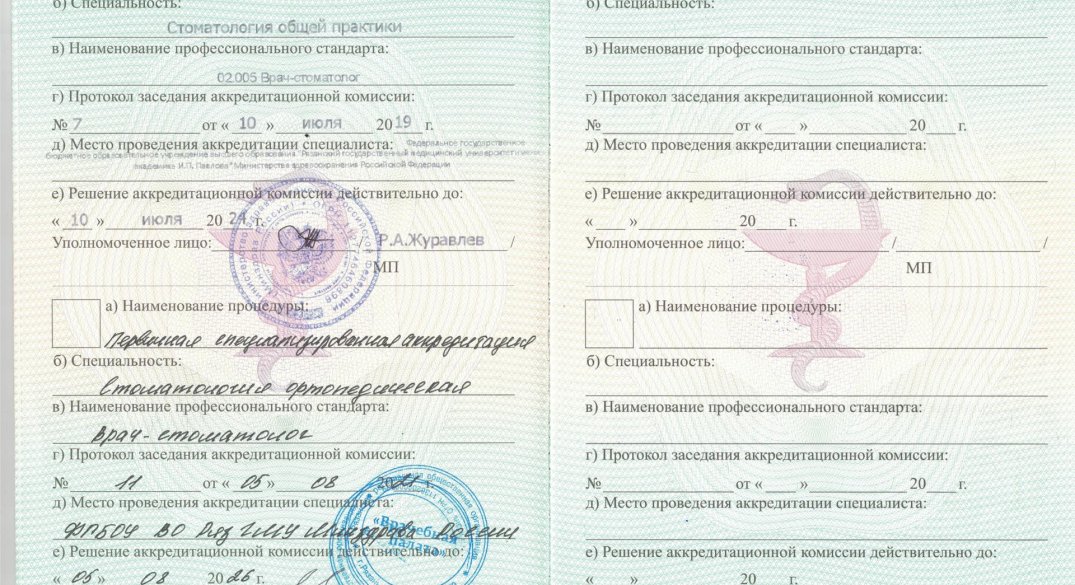 б) Специальность:
Стоматология общей практики
в) Наименование профессионального стандарта:
02.005 Врач-стоматолог
г) Протокол заседания аккредитационной комиссии:
№ 7 от « 10 » июля 2019 г.
д) Место проведения аккредитации специалиста: Федеральное государственное
бюджетное образовательное учреждение высшего образования "Рязанский государственный медицинский университет имени
академика И.П. Павлова" Министерства здравоохранения Российской Федерации
е) Решение аккредитационной комиссии действительно до:
« 10 » июля 2024 г.
Уполномоченное лицо: / Р.А.Журавлев /
МП
а) Наименование процедуры:
Первичная специализированная аккредитация
б) Специальность:
Стоматология ортопедическая
в) Наименование профессионального стандарта:
Врач-стоматолог
г) Протокол заседания аккредитационной комиссии:
№ 11 от « 05 » 08 2021 г.
д) Место проведения аккредитации специалиста:
ФГБОУ ВО РязГМУ Минздрава России
«Врачебная
палата»
е) Решение аккредитационной комиссии действительно до:
« 05 » 08 2026 г.
б) Специальность:
в) Наименование профессионального стандарта:
г) Протокол заседания аккредитационной комиссии:
№ от « » 20 г.
д) Место проведения аккредитации специалиста:
е) Решение аккредитационной комиссии действительно до:
« » 20 г.
Уполномоченное лицо: / /
МП
а) Наименование процедуры:
б) Специальность:
в) Наименование профессионального стандарта:
г) Протокол заседания аккредитационной комиссии:
№ от « » 20 г.
д) Место проведения аккредитации специалиста:
е) Решение аккредитационной комиссии действительно до:
« » 20 г.